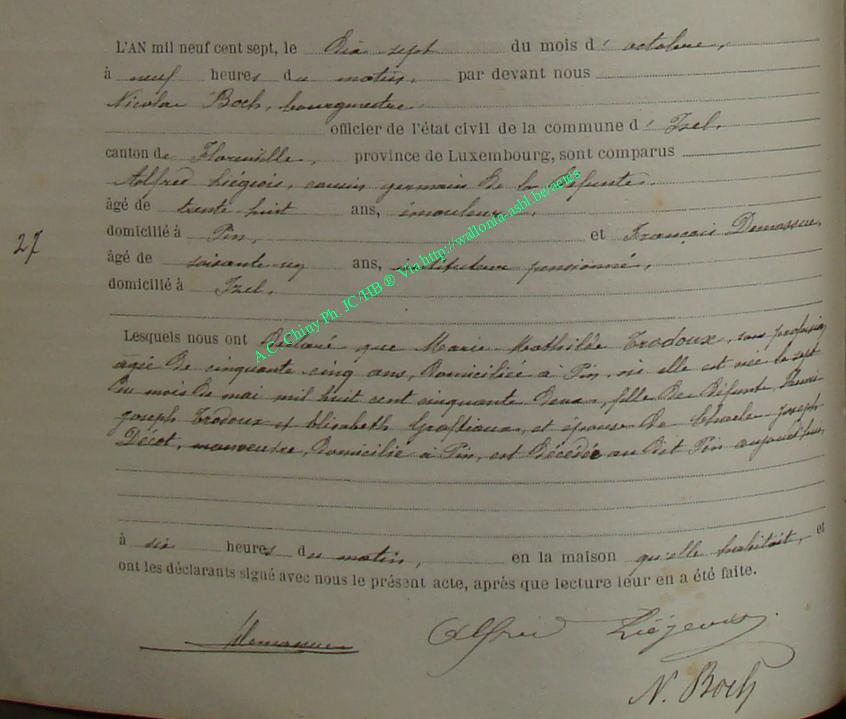 L'AN mil neuf cent sept, le dix sept du mois d'octobre,
à neuf heures du matin, par devant nous
Nicolas Boch, bourgmestre
officier de l'état civil de la commune d'Izel,
canton de Florenville, province de Luxembourg, sont comparus
Alfred Liégeois, cousin germain de la défunte,
âgé de trente huit ans, émouleur,
27
domicilié à Pin, et François Demasure,
âgé de soixante ans, instituteur pensionné,
domicilié à Izel,
A.C. Chiny Ph. JC/HB ® Via http://wallonia-asbl.be/actes
Lesquels nous ont déclaré que Marie Mathilde Trodoux, sans profession
âgée de cinquante cinq ans, domiciliée à Pin, où elle est née le sept
du mois de mai mil huit cent cinquante deux, fille de défunt Henri
joseph Trodoux et Elisabeth Goffiaux, et épouse de Charle joseph
Décot, manoeuvre, domicilié à Pin, est décédée au dit Pin aujourd'hui
à six heures du matin, en la maison qu'elle habitait, et
ont les déclarants signé avec nous le présent acte, après que lecture leur en a été faite.
Alfred Liégeois
N. Boch